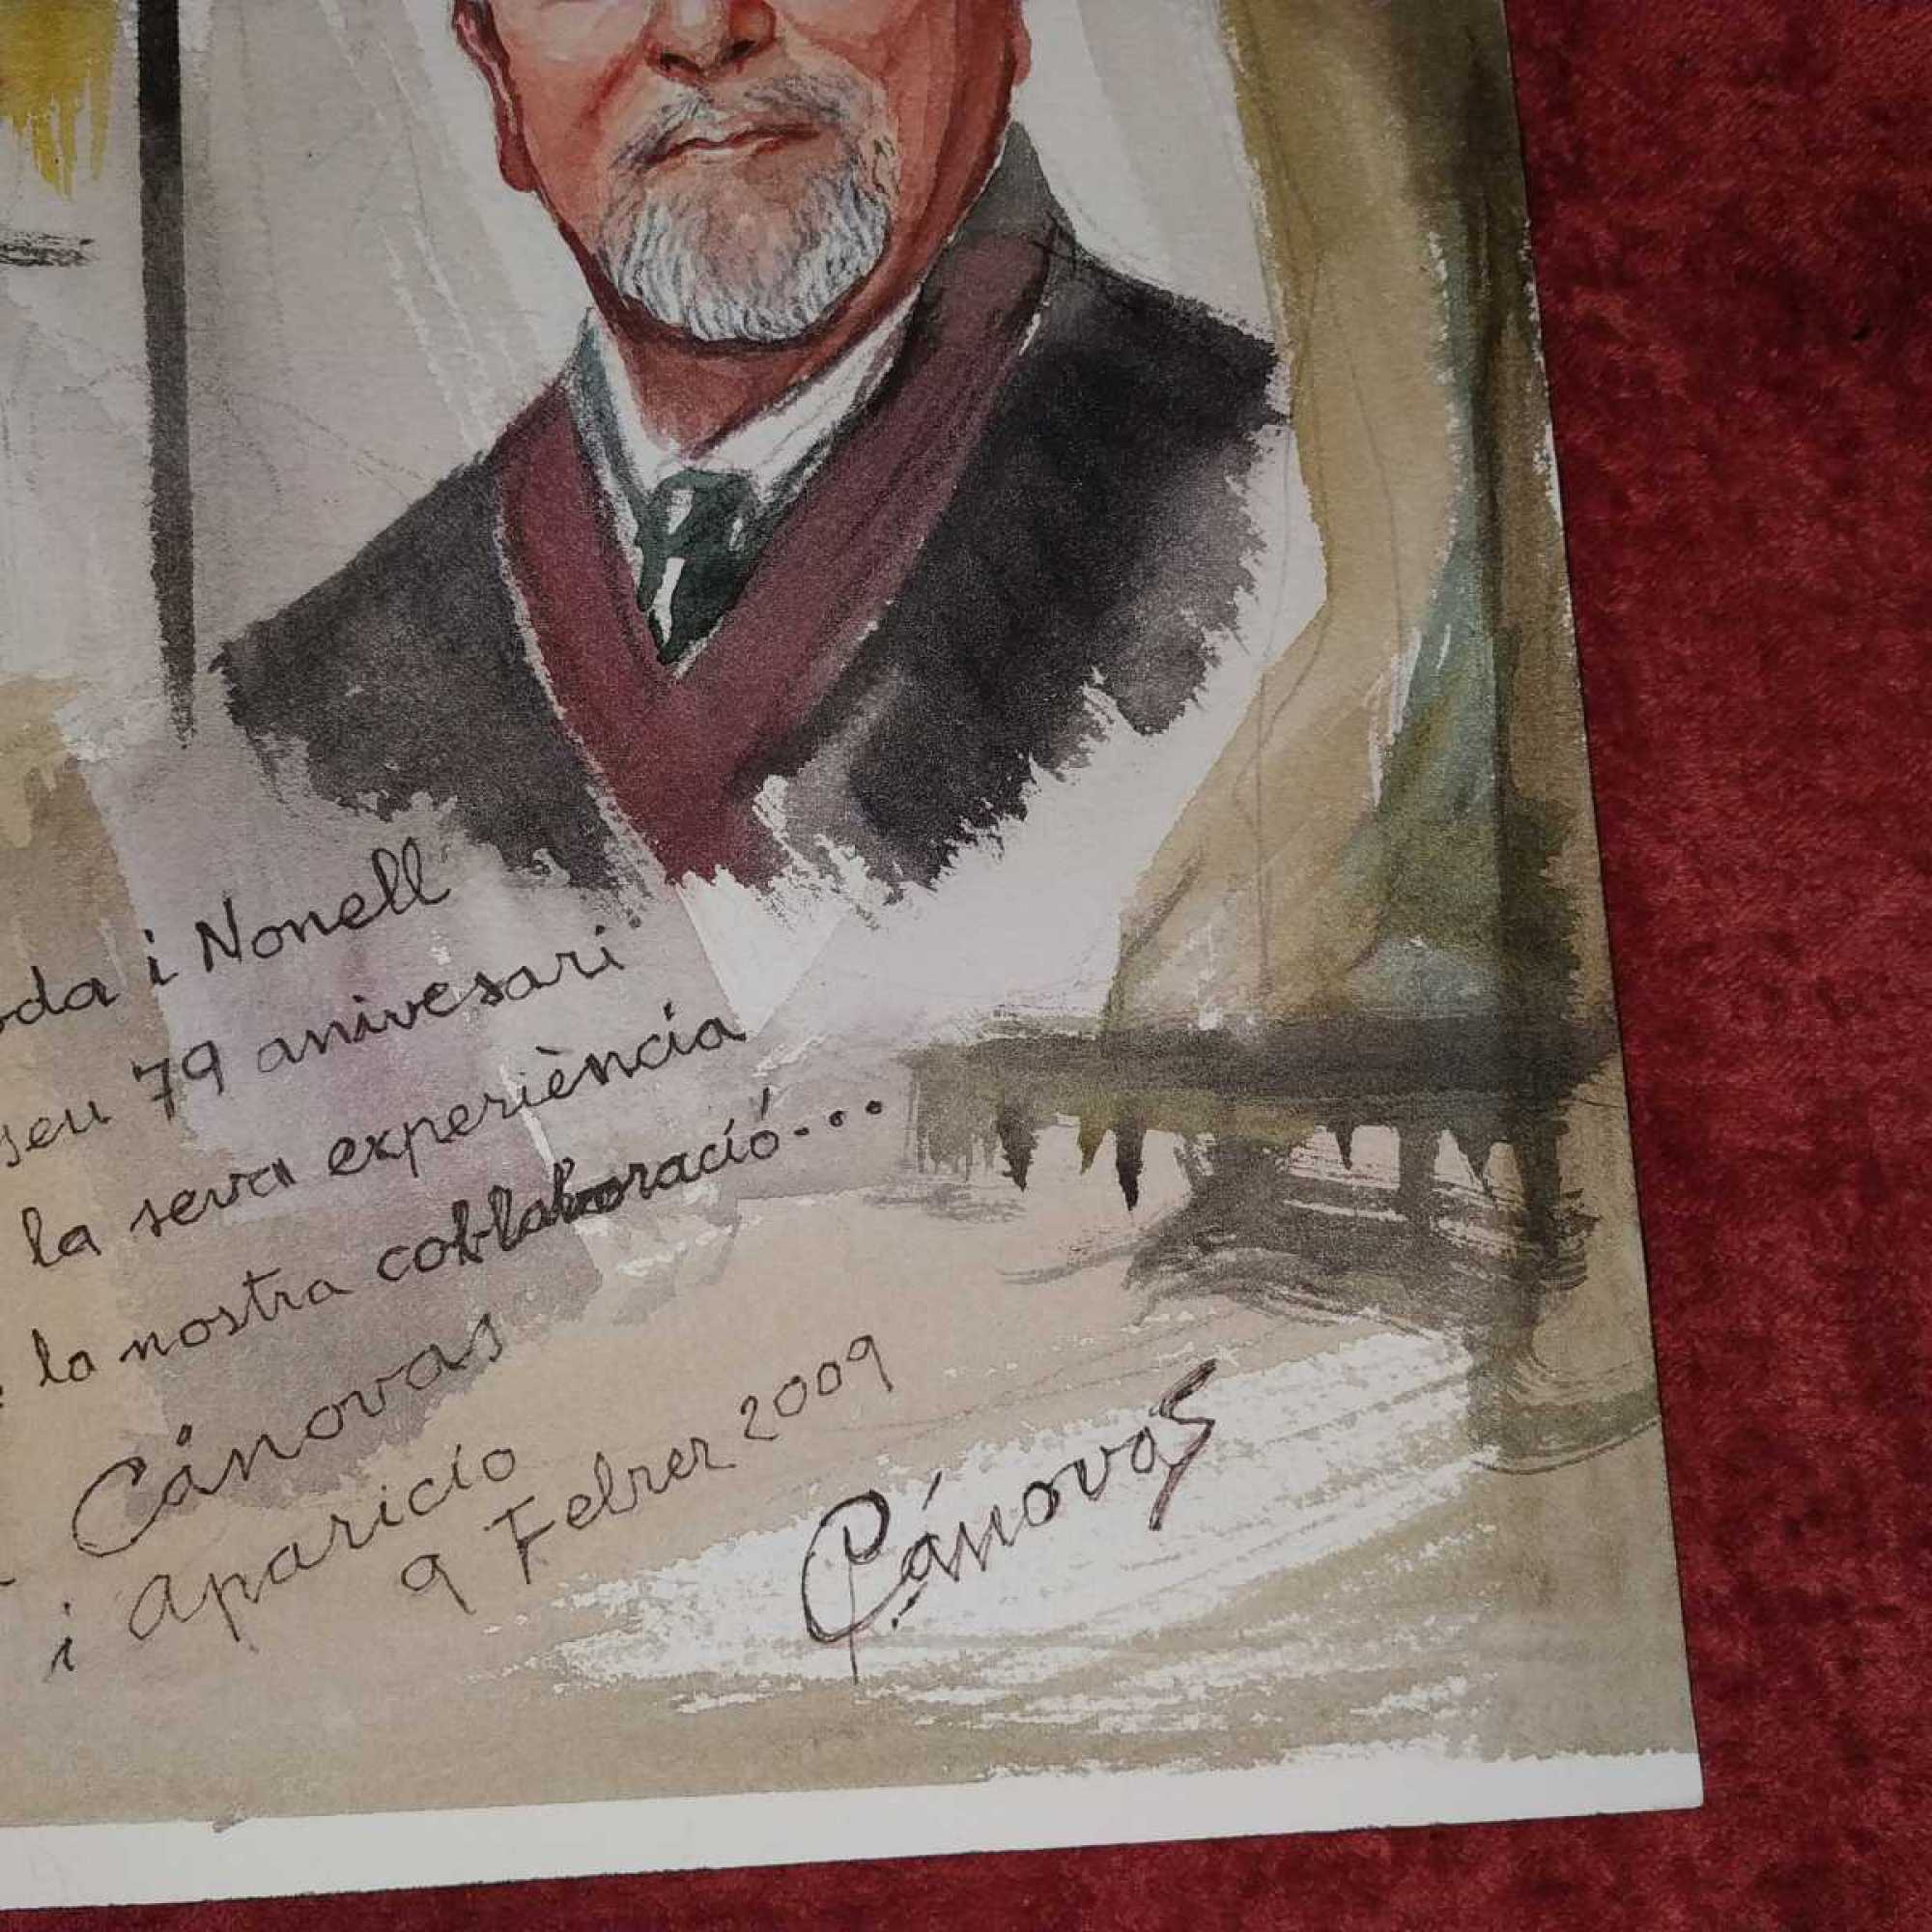 i Nonell
seu 79 anivesari
la seva experiència
la nostra col·laboració...
Cánovas
i Aparicio
9 Febrer 2009
Cánovas